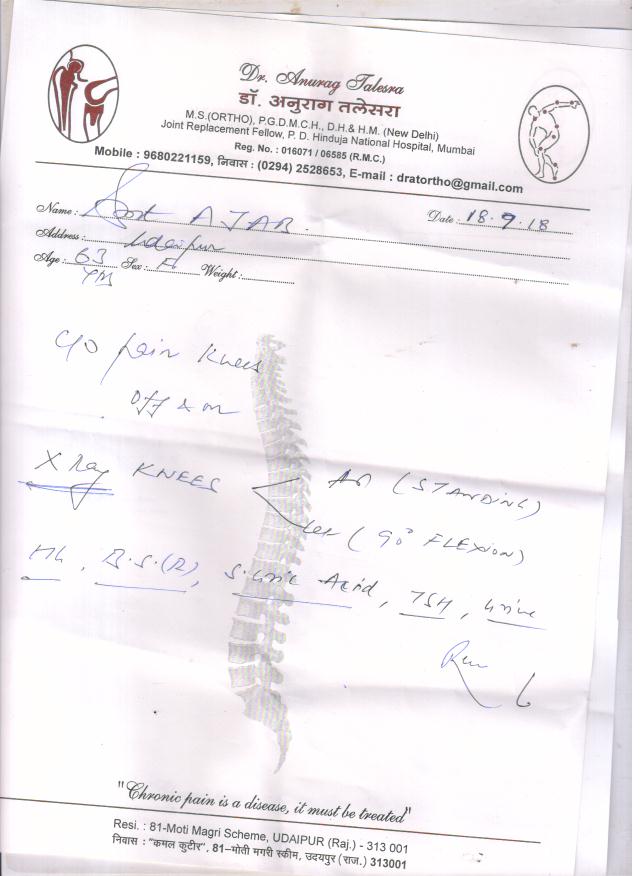 Dr. Anurag Talesra
डॉ. अनुराग तलेसरा
M.S.(ORTHO), P.G.D.M.C.H., D.H.& H.M. (New Delhi)
Joint Replacement Fellow, P. D. Hinduja National Hospital, Mumbai
Reg. No. : 016071 / 06585 (R.M.C.)
Mobile : 9680221159, निवास : (0294) 2528653, E-mail : dratortho@gmail.com
Name : Smt AJAB. Date : 18.9.18
Address : Udaipur
Age : 63 Sex : Weight :
C/O pain Knees
Off & on
X Ray KNEES AP (STANDING)
Lat (90° FLEXION)
B.S.(R), S. Uric Acid, TSH, Urine
"Chronic pain is a disease, it must be treated"
Resi. : 81-Moti Magri Scheme, UDAIPUR (Raj.) - 313 001
निवास : "कमल कुटीर", 81–मोती मगरी स्कीम, उदयपुर (राज.) 313001